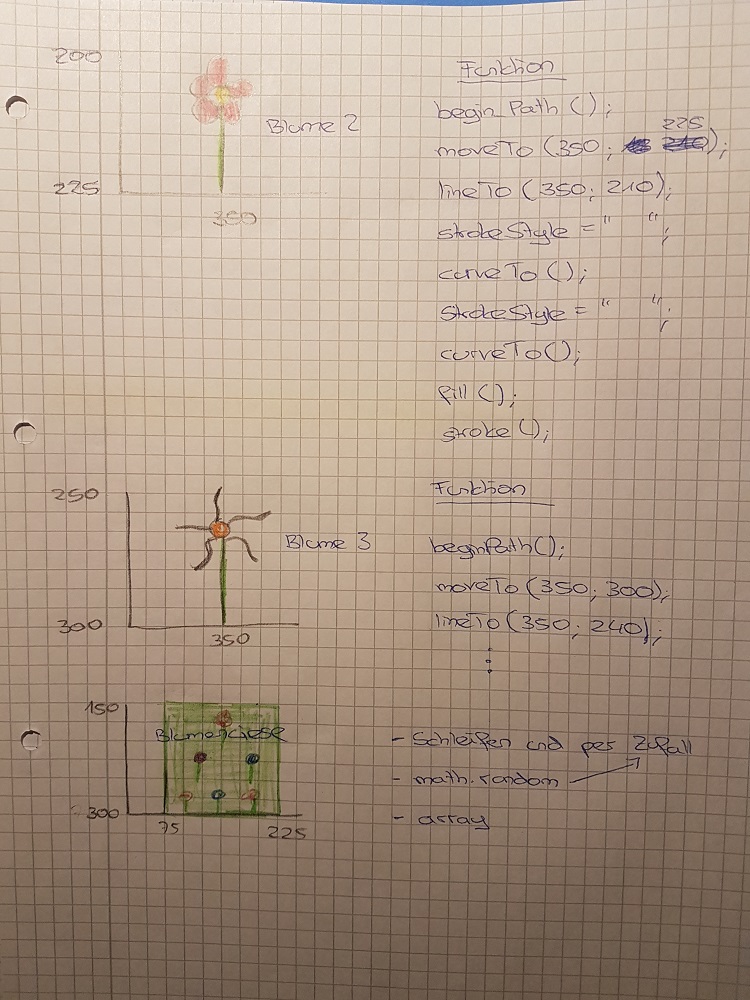 200
Blume 2
225
350
Funktion
begin Path ();
225
moveTo (350; 240);
lineTo (350; 210);
strokeStyle = " ";
curveTo ();
strokeStyle = " ";
curveTo();
fill ();
stroke ();
250
Blume 3
300
350
Funktion
beginPath();
moveTo (350; 300);
lineTo (350; 240);
150
Blumenwiese
300
75 225
- Schleifen und per Zufall
- math.random
- array